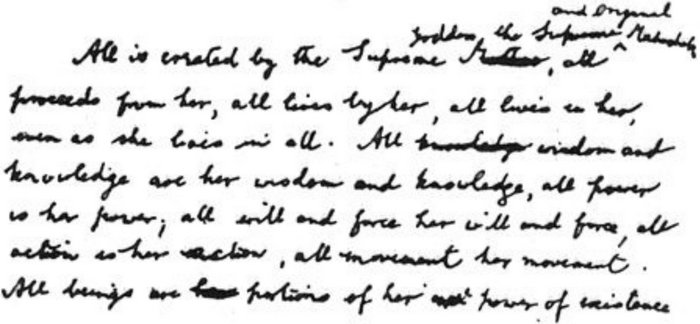 and Original
Goddess, the Supreme ^ Mahashakti
All is created by the Supreme Mother, all
proceeds from her, all lives by her, all lives in her,
even as she lives in all. All knowledge wisdom and
knowledge are her wisdom and knowledge, all power
is her power; all will and force her will and force, all
action is her action, all movement her movement.
All beings are portions of her power of existence